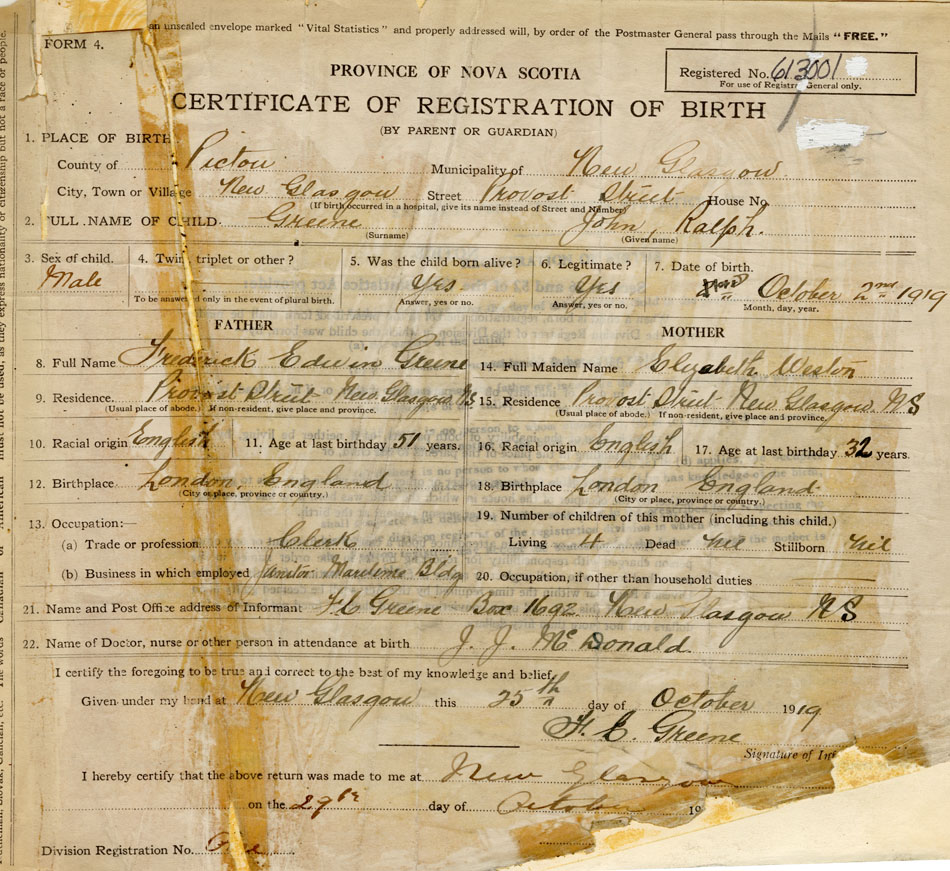 an unsealed envelope marked "Vital Statistics" and properly addressed will, by order of the Postmaster General pass through the Mails "FREE."
FORM 4.
PROVINCE OF NOVA SCOTIA
Registered No. 613001
For use of Registrar General only.
CERTIFICATE OF REGISTRATION OF BIRTH
(BY PARENT OR GUARDIAN)
1. PLACE OF BIRTH
County of Pictou Municipality of New Glasgow.
City, Town or Village New Glasgow Street Provost Street House No.
(If birth occurred in a hospital, give its name instead of Street and Number)
2. FULL NAME OF CHILD. Greene John, Ralph.
(Surname) (Given name)
3. Sex of child. 4. Twin, triplet or other? 5. Was the child born alive? 6. Legitimate? 7. Date of birth.
Male Yes Yes October 2nd 1919
To be answered only in the event of plural birth. Answer, yes or no. Answer, yes or no. Month, day, year.
FATHER MOTHER
8. Full Name Frederick Edwin Greene 14. Full Maiden Name Elizabeth Weston
9. Residence. Provost Street New Glasgow NS 15. Residence Provost Street New Glasgow. NS
(Usual place of abode.) If non-resident, give place and province. (Usual place of abode.) If non-resident, give place and province.
10. Racial origin English 11. Age at last birthday 51 years. 16. Racial origin English 17. Age at last birthday 32 years.
12. Birthplace London, England 18. Birthplace London England
(City or place, province or country.) (City or place, province or country.)
13. Occupation:— 19. Number of children of this mother (including this child.)
(a) Trade or profession Clerk Living 4 Dead Nil Stillborn Nil
(b) Business in which employed Janitor Maritime Bldg 20. Occupation, if other than household duties
21. Name and Post Office address of Informant F E Greene Box 1692 New Glasgow NS
22. Name of Doctor, nurse or other person in attendance at birth J. J. McDonald
I certify the foregoing to be true and correct to the best of my knowledge and belief.
Given under my hand at New Glasgow this 25th day of October 1919
F. E. Greene
Signature of Inf
I hereby certify that the above return was made to me at New Glasgow
on the 29th day of October 19
Division Registration No.